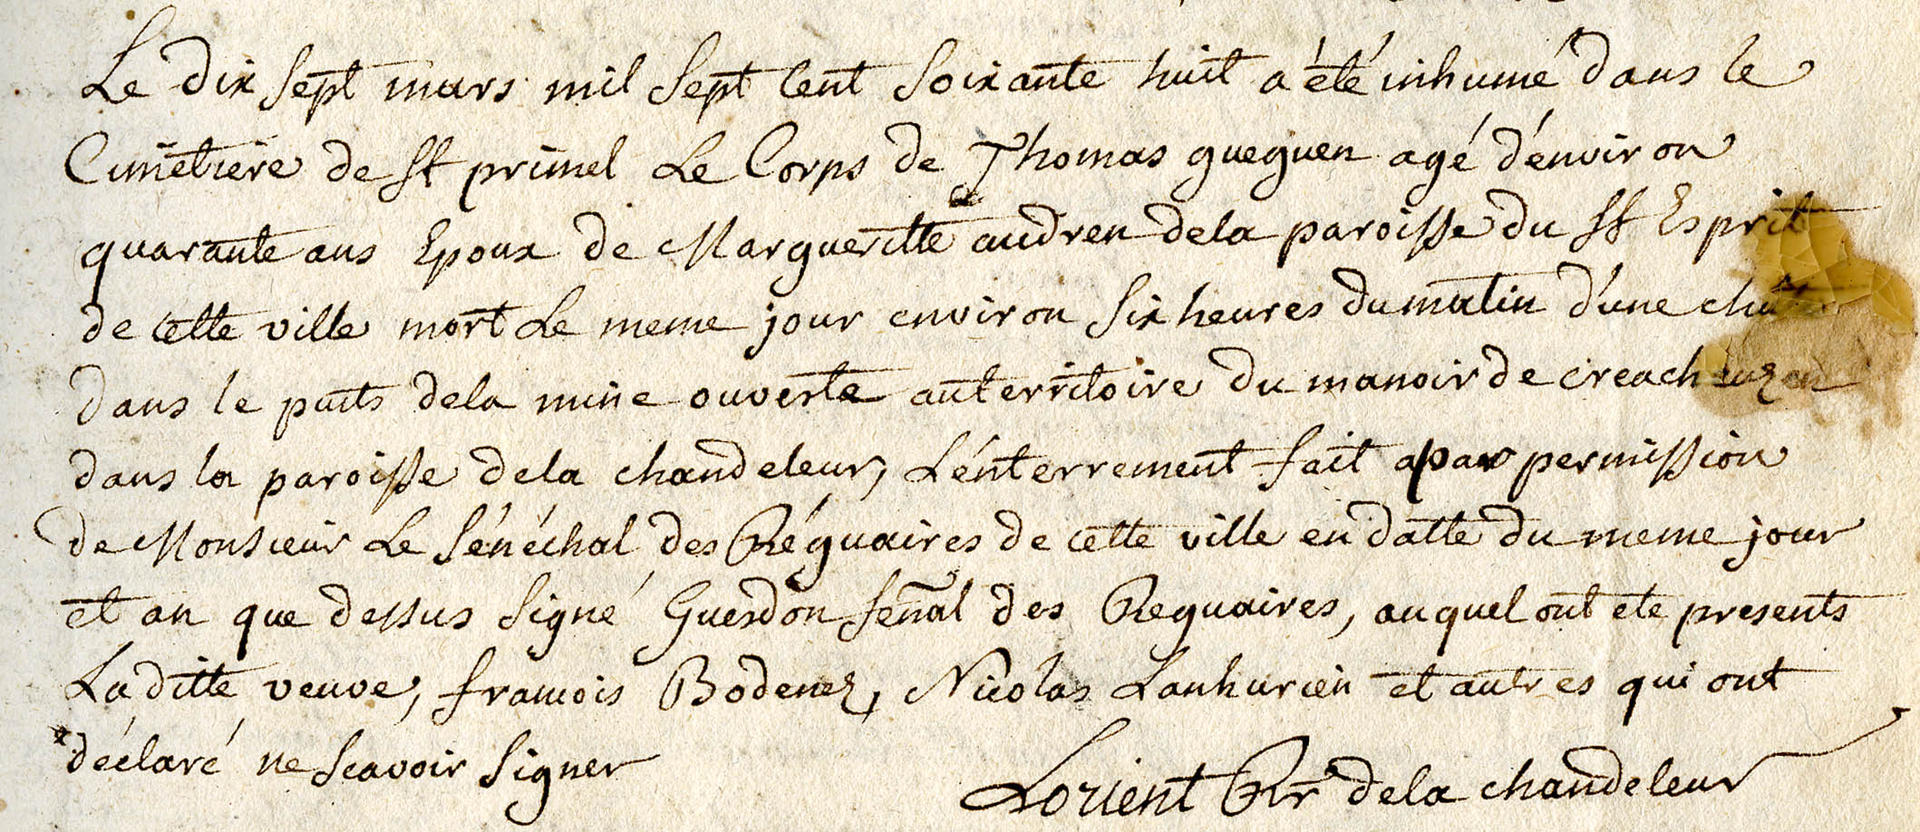 Le dix sept mars mil sept cent soixante huit a été inhumé dans le
Cimetiere de St primel Le Corps de Thomas gueguen agé d'environ
quarante ans Epoux de Margueritte audren dela paroisse du St Esprit
de cette ville mort Le meme jour environ six heures du matin d'une chute
dans le puits dela mine ouverte au territoire du manoir de creach
dans la paroisse dela chandeleur, L'enterrement fait par permission
de Monsieur Le sénéchal des Réguaires de cette ville en datte du meme jour
et an que dessus signé Guesdon senal des Reguaires, auquel ont ete presents
La ditte veuve, francois Bodenez, Nicolas Lanhurien et autres qui ont
déclaré ne scavoir signer
Lorient Rr dela chandeleur